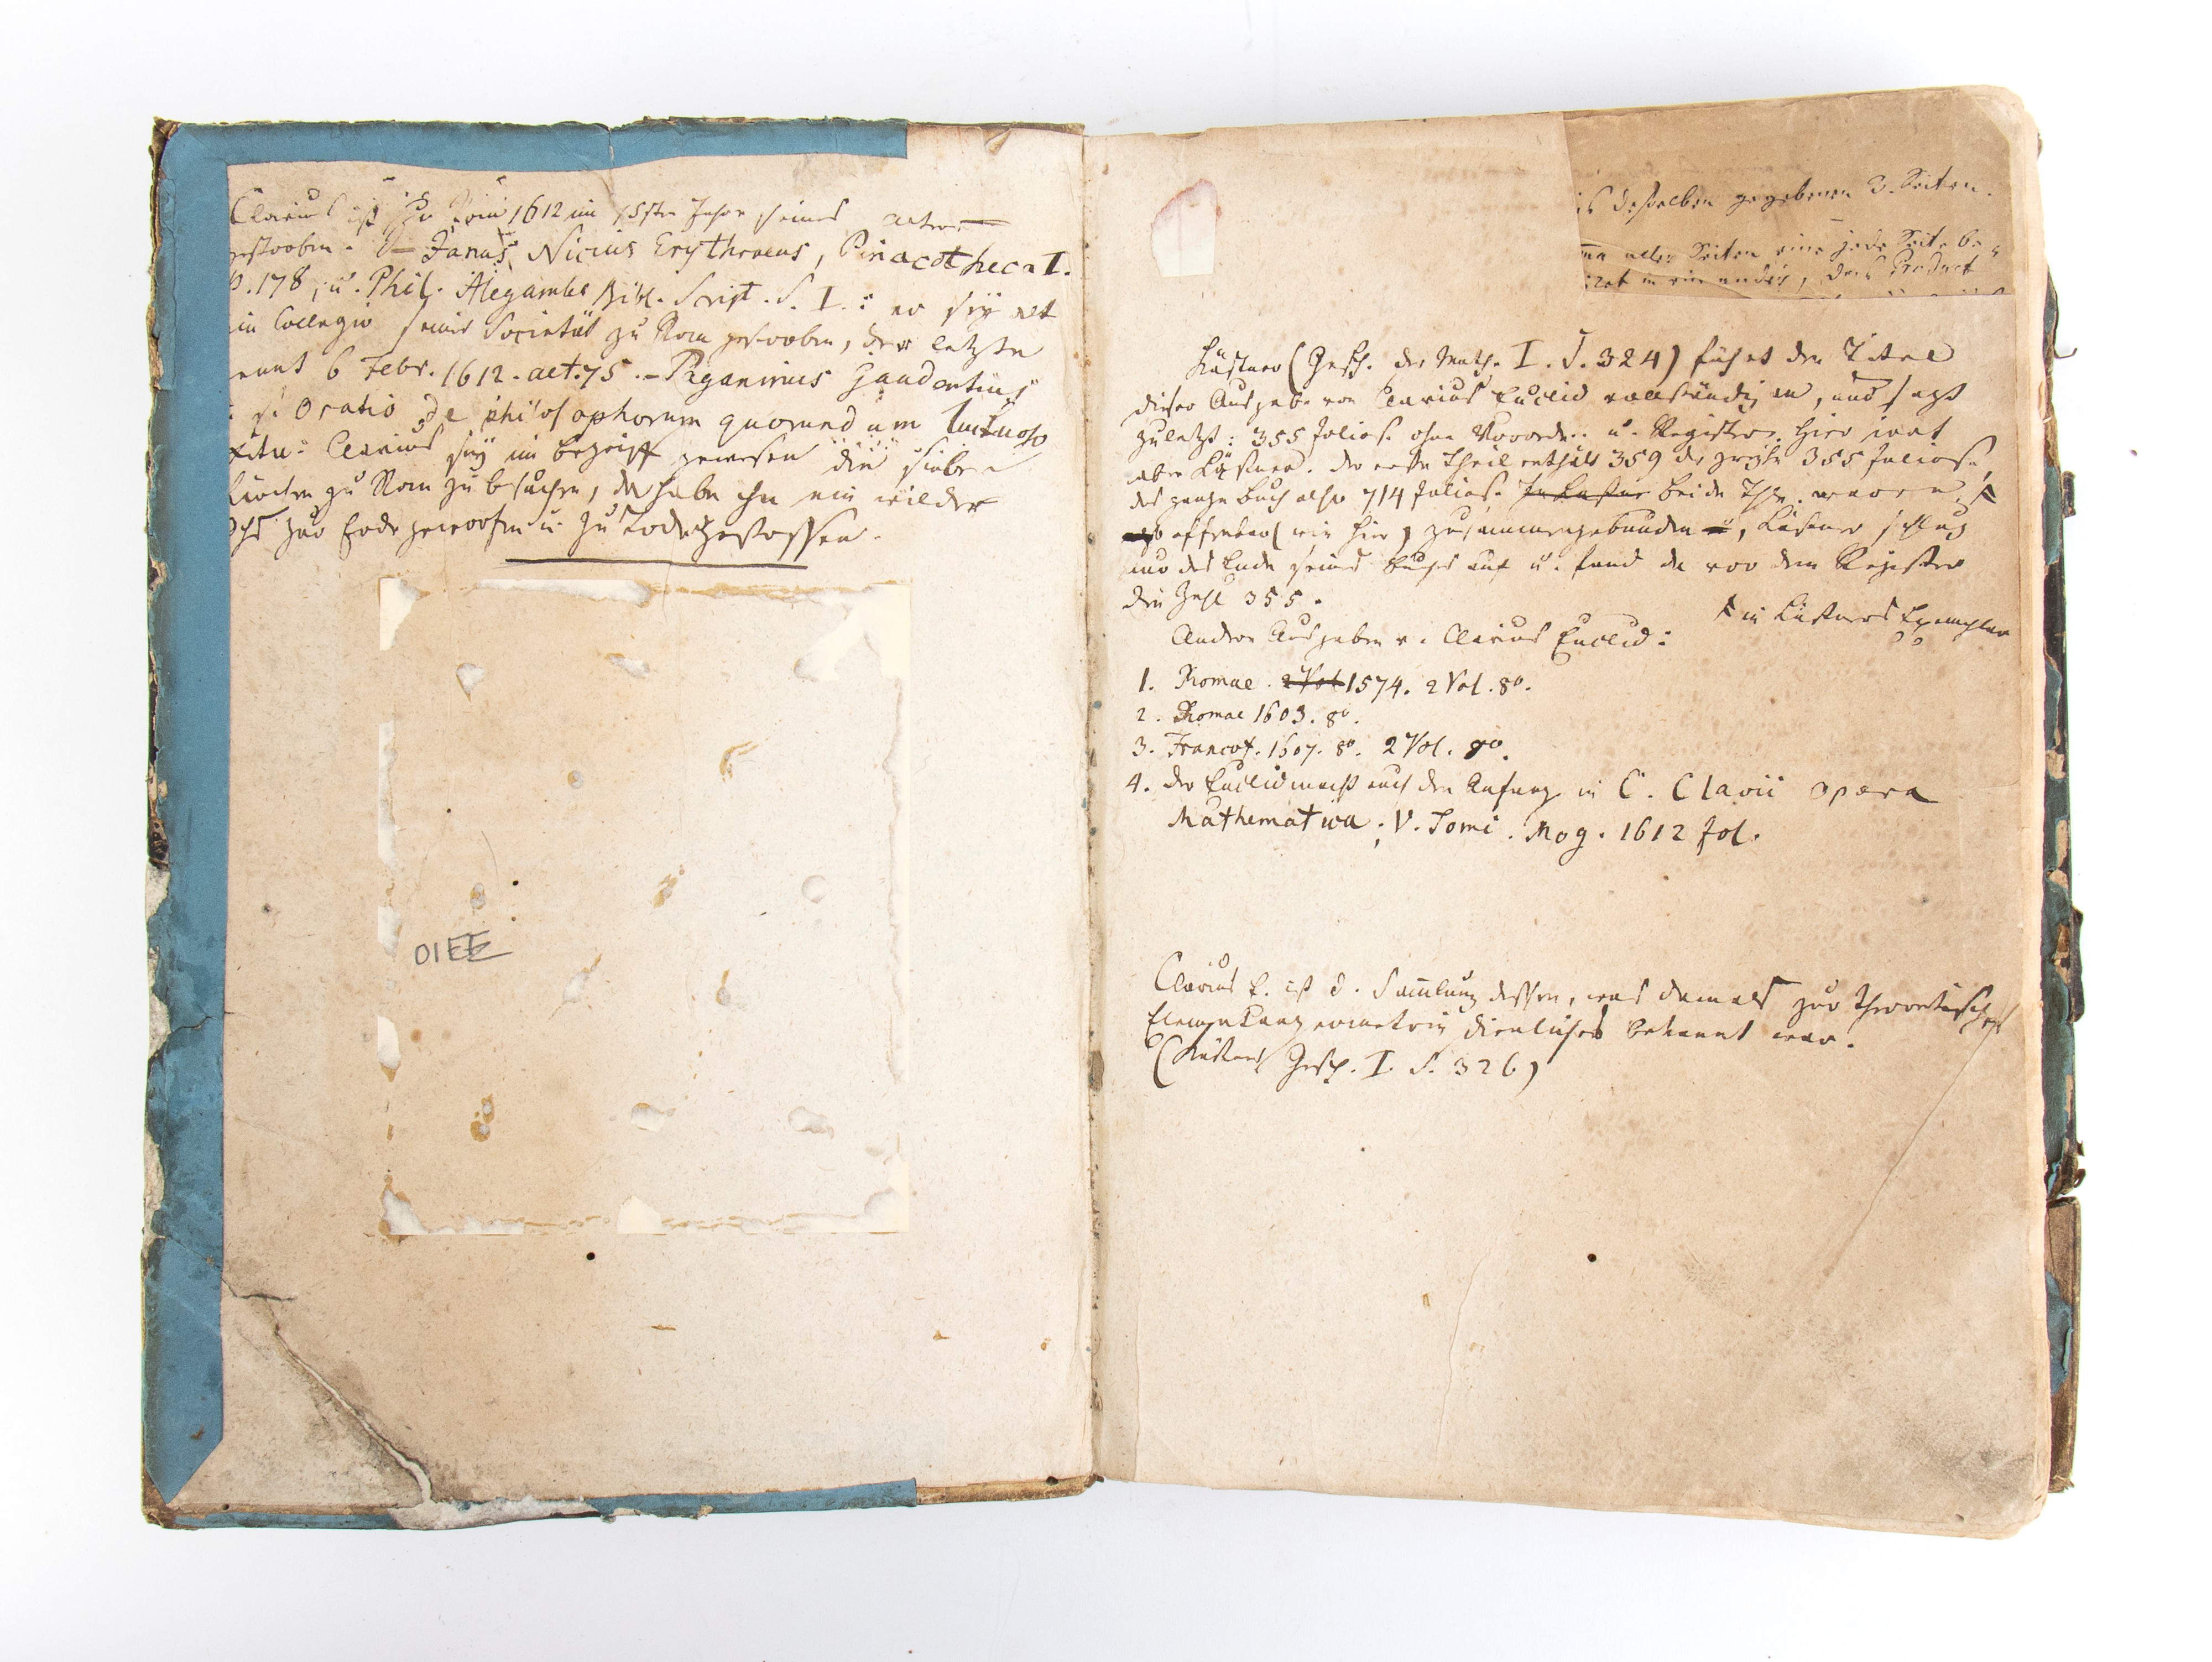 Clavius ist zu Rom 1612 im 75sten Jahre seines Alters
gestorben. Janus Nicius Erythraeus, Pinacotheca I.
p. 178, u. Phil. Alegambe Bibl. Script. S. I.: er sey alt
im Collegio seiner Societät zu Rom gestorben, der letzte
nennt 6 Febr. 1612. aet. 75. – Paganinus Gaudentius
Oratio de philosophorum quorundam luctuoso
exitu: Clavius sey im Begriff gewesen die sieben
Kirchen zu Rom zu besuchen, da habe ihn ein wilder
Ochs zur Erde geworfen u. zu Tode gestossen.
OIEE
desselben gegebenen 3. Seiten.
aller Seiten eine jede Seite be-
in einander, das Product
Kästner (Gesch. der Math. I. S. 324) führt den Titel
dieser Ausgabe von Clavius Euclid vollständig an, und sagt
zuletzt: 355 Folios. ohne Vorrede u. Register. Hier irrt
aber Kästner. Der erste Theil enthält 359 der zweyte 355 Folios.,
das ganze Buch also 714 Folios. In Kästner beide Thle. waren
offenbar (wie hier) zusammengebunden, Kästner schlug
nur das Ende seines Buches auf u. fand da vor dem Register
die Zahl 355.
in Kästners Exemplar
Andere Ausgaben v. Clavius Euclid:
1. Romae. 2 Vol. 1574. 2 Vol. 8°.
2. Romae 1603. 8°.
3. Francof. 1607. 8°. 2 Vol. 8°.
4. der Euclid macht auch den Anfang in C. Clavii opera
Mathematica; V. Tomi. Mog. 1612 fol.
Clavius E. ist d. Sammlung dessen, was damals zur theoretischen
Elementargeometrie dienliches bekannt war.
(Kästners Gesch. I. S. 326)